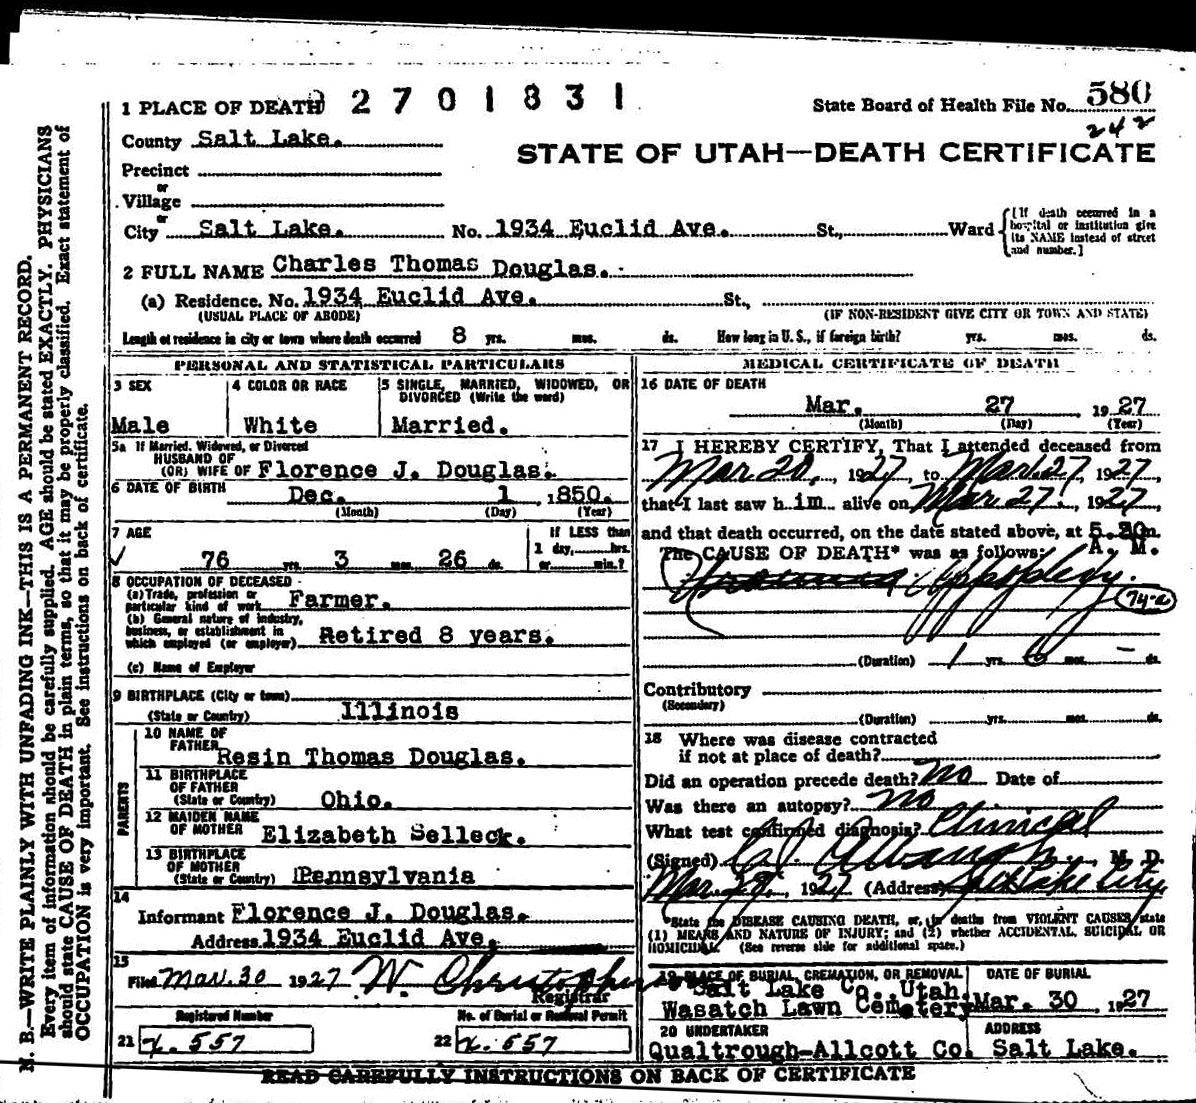 1 PLACE OF DEATH 2701831 State Board of Health File No. 580
242
County Salt Lake.
STATE OF UTAH—DEATH CERTIFICATE
Precinct
or
Village
or
City Salt Lake. No. 1934 Euclid Ave. St., Ward [If death occurred in a hospital or institution give its NAME instead of street and number.]
2 FULL NAME Charles Thomas Douglas.
(a) Residence. No. 1934 Euclid Ave. St.,
(USUAL PLACE OF ABODE) (IF NON-RESIDENT GIVE CITY OR TOWN AND STATE)
Length of residence in city or town where death occurred 8 yrs. mos. ds. How long in U. S., if foreign birth? yrs. mos. ds.
PERSONAL AND STATISTICAL PARTICULARS
3 SEX
Male
4 COLOR OR RACE
White
5 SINGLE, MARRIED, WIDOWED, OR
DIVORCED (Write the word)
Married.
5a If Married, Widowed, or Divorced
HUSBAND OF
(OR) WIFE OF Florence J. Douglas.
6 DATE OF BIRTH Dec. 1 , 1850.
(Month) (Day) (Year)
7 AGE
76 yrs. 3 mos. 26 ds.
If LESS than
1 day, hrs.
or min.?
8 OCCUPATION OF DECEASED
(a) Trade, profession or
particular kind of work Farmer.
(b) General nature of industry,
business, or establishment in
which employed (or employer) Retired 8 years.
(c) Name of Employer
9 BIRTHPLACE (City or town)
(State or Country) Illinois
PARENTS
10 NAME OF
FATHER Resin Thomas Douglas.
11 BIRTHPLACE
OF FATHER
(State or Country) Ohio.
12 MAIDEN NAME
OF MOTHER Elizabeth Selleck.
13 BIRTHPLACE
OF MOTHER
(State or Country) Pennsylvania
14
Informant Florence J. Douglas.
Address 1934 Euclid Ave.
15
Filed Mar. 30 1927 W.
Registrar
Registered Number
21 x. 557
No. of Burial or Removal Permit
22 x. 557
MEDICAL CERTIFICATE OF DEATH
16 DATE OF DEATH
Mar. 27 , 1927
(Month) (Day) (Year)
17 I HEREBY CERTIFY, That I attended deceased from
Mar 20, 1927 to Mar. 27, 1927,
that I last saw him alive on Mar 27, 1927,
and that death occurred, on the date stated above, at m.
The CAUSE OF DEATH* was as follows: A. M.
Apoplexy.
74-a
(Duration) 1 yrs. 6 mos. – ds.
Contributory
(Secondary)
(Duration) yrs. mos. ds.
18 Where was disease contracted
if not at place of death?
Did an operation precede death? No Date of
Was there an autopsy? no
What test confirmed diagnosis? Clinical
(Signed) M. D.
Mar. 28, 1927 (Address) Salt Lake City.
*State the DISEASE CAUSING DEATH, or, in deaths from VIOLENT CAUSES, state
(1) MEANS AND NATURE OF INJURY; and (2) whether ACCIDENTAL, SUICIDAL OR
HOMICIDAL. (See reverse side for additional space.)
19 PLACE OF BURIAL, CREMATION, OR REMOVAL
Salt Lake Co. Utah.
Wasatch Lawn Cemetery
DATE OF BURIAL
Mar. 30 , 1927
20 UNDERTAKER
Qualtrough-Allcott Co.
ADDRESS
Salt Lake.
READ CAREFULLY INSTRUCTIONS ON BACK OF CERTIFICATE
N. B.—WRITE PLAINLY WITH UNFADING INK—THIS IS A PERMANENT RECORD.
Every item of information should be carefully supplied. AGE should be stated EXACTLY. PHYSICIANS
should state CAUSE OF DEATH in plain terms, so that it may be properly classified. Exact statement of
OCCUPATION is very important. See instructions on back of certificate.